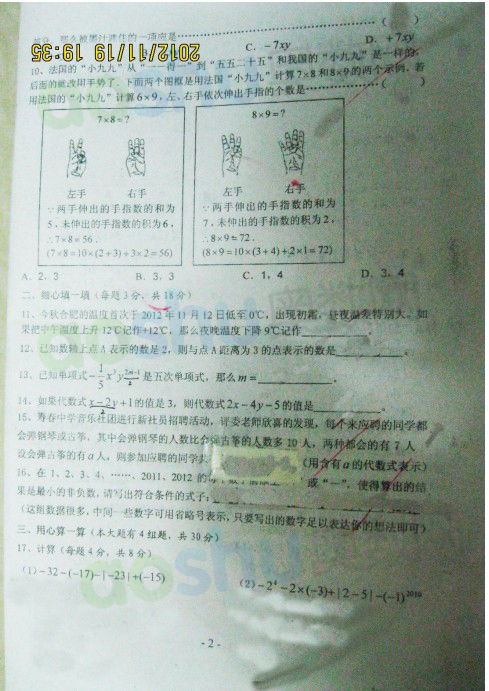 部分，那么被墨汁遮住的一项应是…………………………（ ）
C. －7xy D. ＋7xy
2012/11/19 19:35
10、法国的“小九九”从“一一得一”到“五五二十五”和我国的“小九九”是一样的，
后面的就改用手势了．下面两个图框是用法国“小九九”计算7×8和8×9的两个示例．若
用法国的“小九九”计算6×9，左、右手依次伸出手指的个数是……………（ ）
7×8=？
左手 右手
∵两手伸出的手指数的和为
5，未伸出的手指数的积为6，
∴7×8=56．
(7×8=10×(2+3)+3×2=56)
8×9=？
左手 右手
∵两手伸出的手指数的和为
7，未伸出的手指数的积为2，
∴8×9=72．
(8×9=10×(3+4)+2×1=72)
A. 2，3 B. 3，3 C. 1，4 D. 3，4
二、细心填一填（每题3分，共18分）
11、今秋合肥的温度首次于2012年11月12日低至0℃，出现初霜，昼夜温差特别大。如
果把中午温度上升12℃记作+12℃，那么夜晚温度下降9℃记作。
12、已知数轴上点A表示的数是2，则与点A距离为3的点表示的数是。
13、已知单项式 -1/5 x³y^(2m-1)/2 是五次单项式，那么m=
14、如果代数式x－2y＋1的值是3，则代数式2x－4y－5的值是
15、寿春中学音乐社团进行新社员招聘活动，评委老师欣喜的发现，每个来应聘的同学都
会弹钢琴或古筝，其中会弹钢琴的人数比会弹古筝的人数多10人，两种都会的有7人
设会弹古筝的有a人，则参加应聘的同学共（用含有a的代数式表示）
16、在1、2、3、4、……、2011、2012的每个数字前添上 或“－”，使得算出的结
果是最小的非负数，请写出符合条件的式子：
（这组数据很多，中间一些数字可用省略号表示，只要写出的数字足以表达你的想法即可）
三、用心算一算（本大题有4组题，共30分）
17、计算（每题4分，共8分）
(1) －32－(－17)－|－23|＋(－15) (2) －2⁴－2×(－3)＋|2－5|－(－1)²⁰¹⁰
- 2 -
aoshu